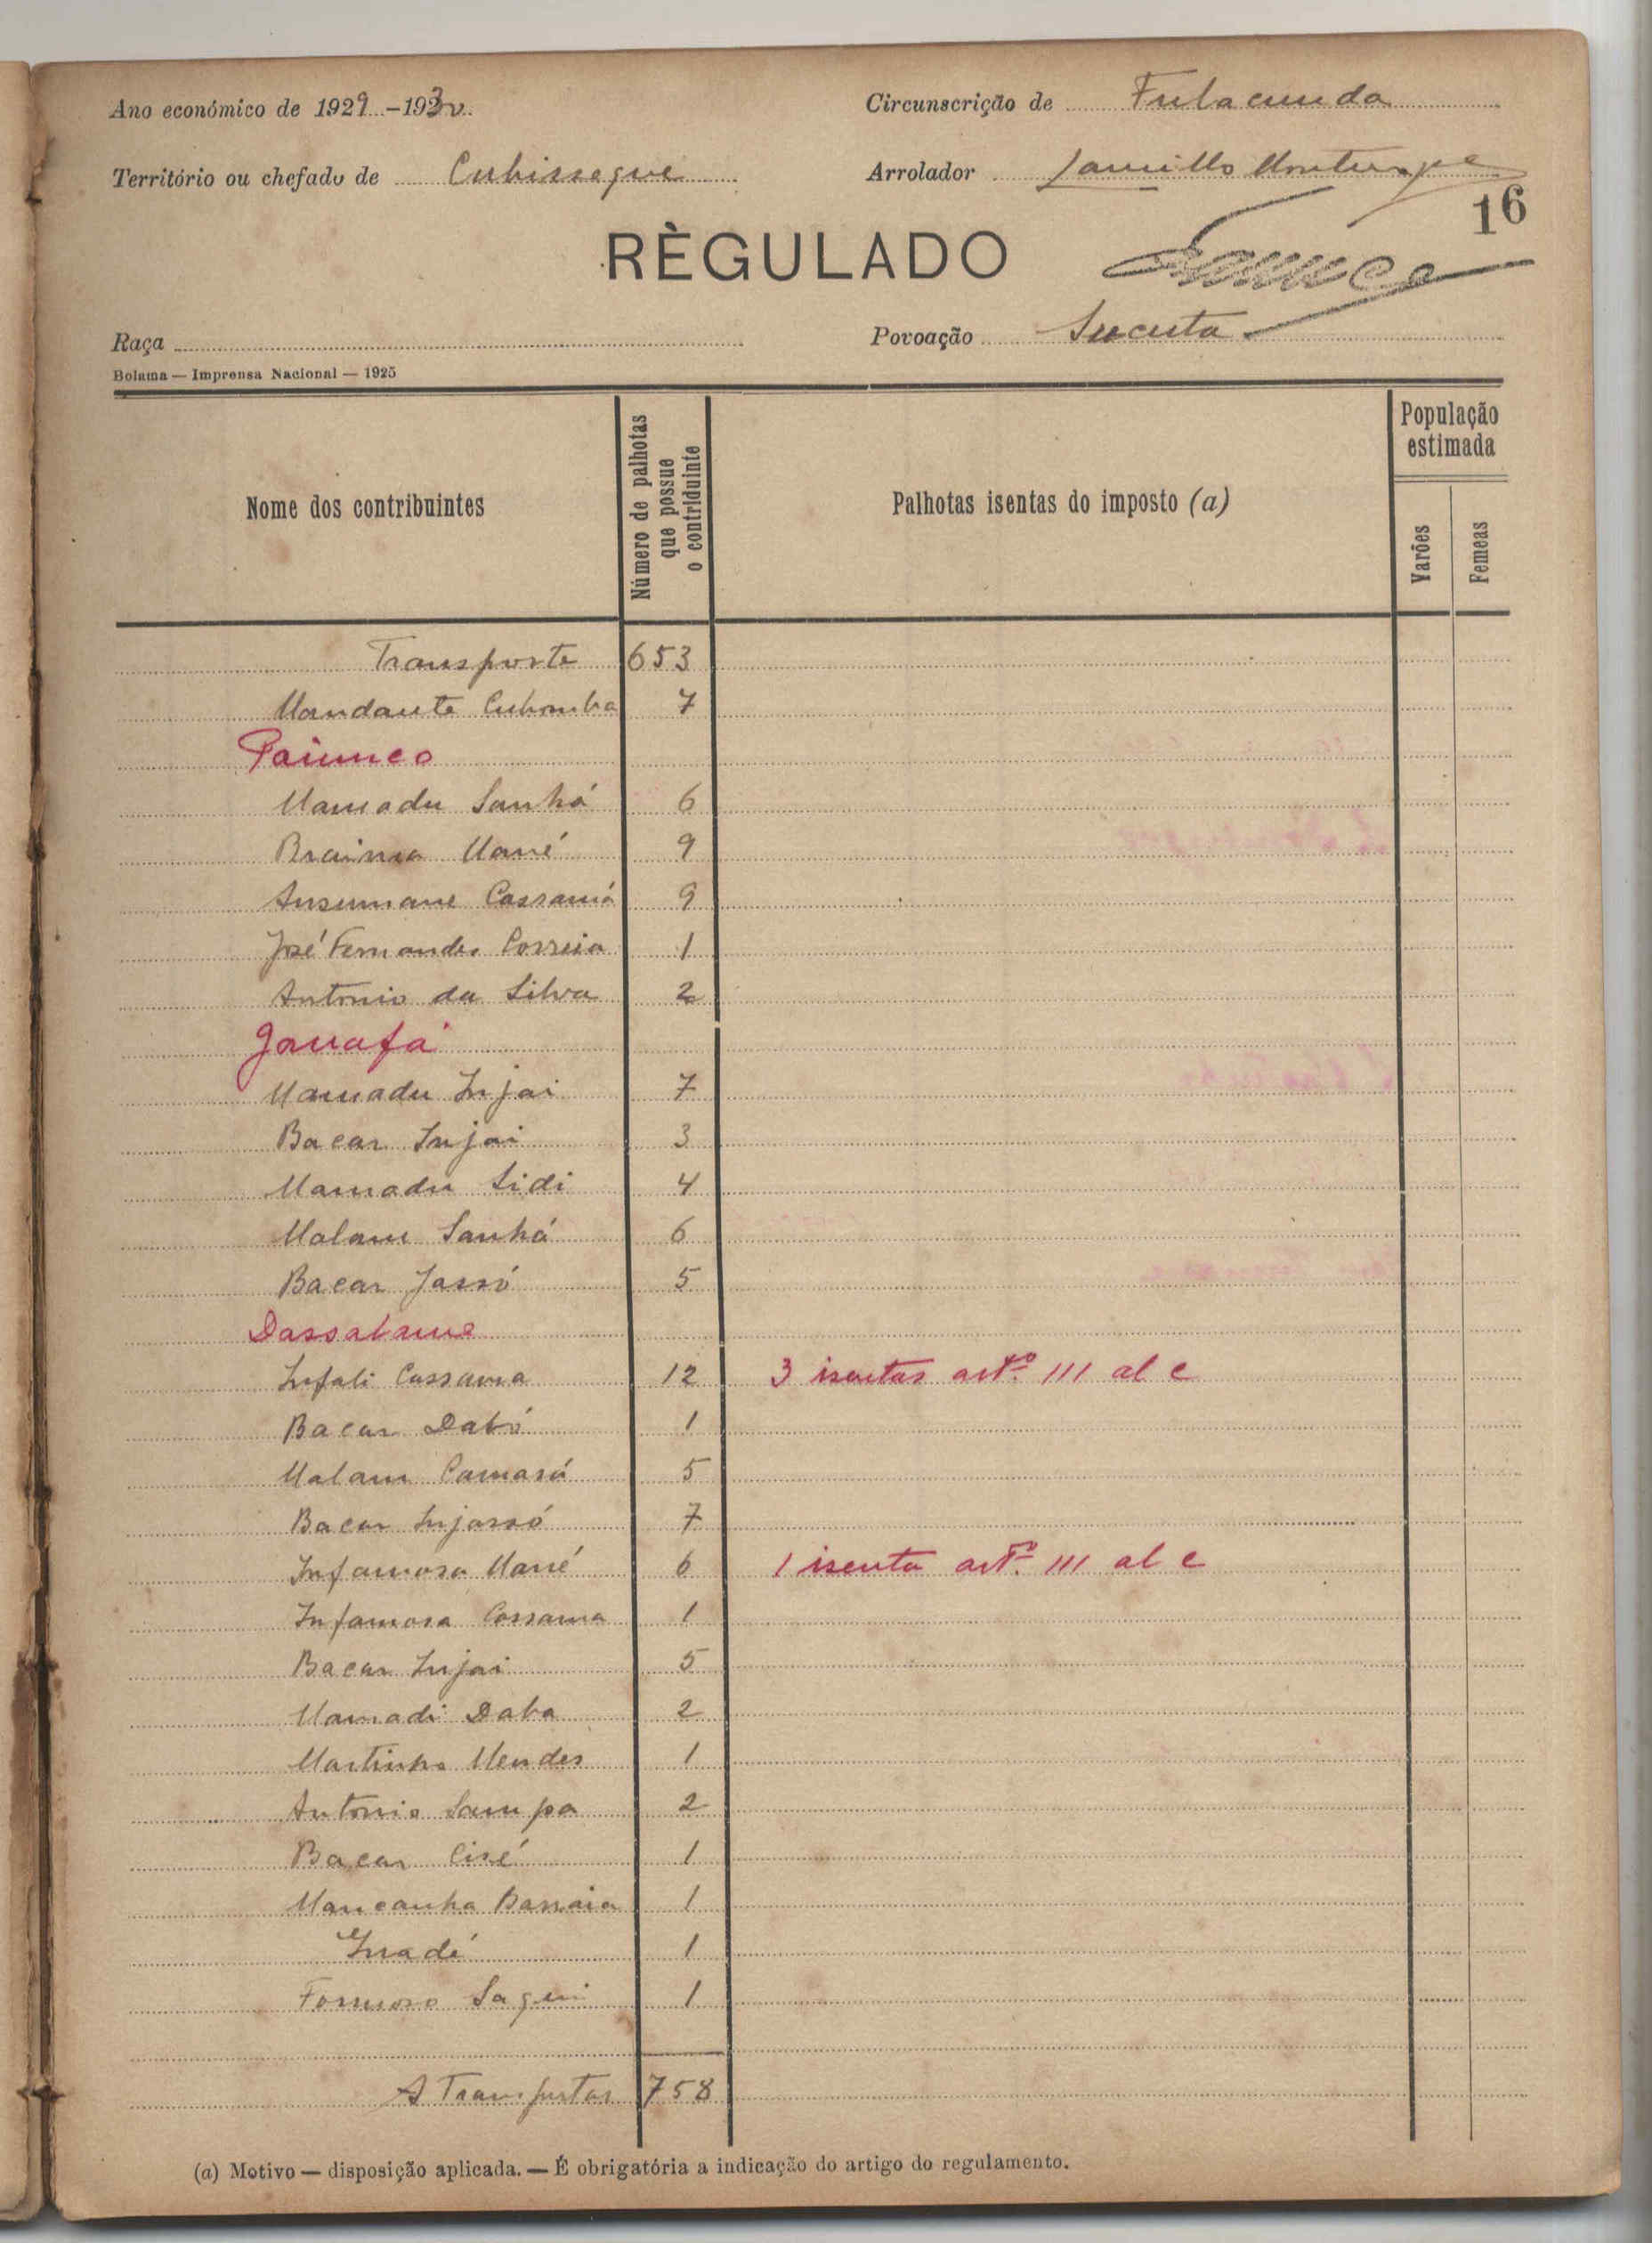 Ano económico de 1929-1930
Circunscrição de Fulacunda
Território ou chefado de Cubisseque
Arrolador
16
RÈGULADO
Raça
Povoação Sucuta
Bolama — Imprensa Nacional — 1925
Nome dos contribuintes
Número de palhotas que possue o contriduinte
Palhotas isentas do imposto (a)
População estimada
Varões
Femeas
Transporte 653
Mandaute Cubomba 7
Paiunco
Mamadu Sanhá 6
Braima Mané 9
Ansumane Cassamá 9
José Fernandes Correia 1
Antonio da Silva 2
Janafá
Mamadu Injai 7
Bacar Injai 3
Mamadu Sidi 4
Malam Sanhá 6
Bacar Jassó 5
Dassalame
Infali Cassama 12 3 isentas artº. 111 al c
Bacar Dabó 1
Malam Camará 5
Bacar Injassó 7
Infamara Mané 6 1 isenta artº. 111 al c
Infamara Cassama 1
Bacar Injai 5
Mamadi Daba 2
Martinho Mendes 1
Antonio Sampa 2
Bacar Cisé 1
Mancanha Bassaia 1
1
Formoso Sagui 1
A Transportar 758
(a) Motivo — disposição aplicada. — É obrigatória a indicação do artigo do regulamento.